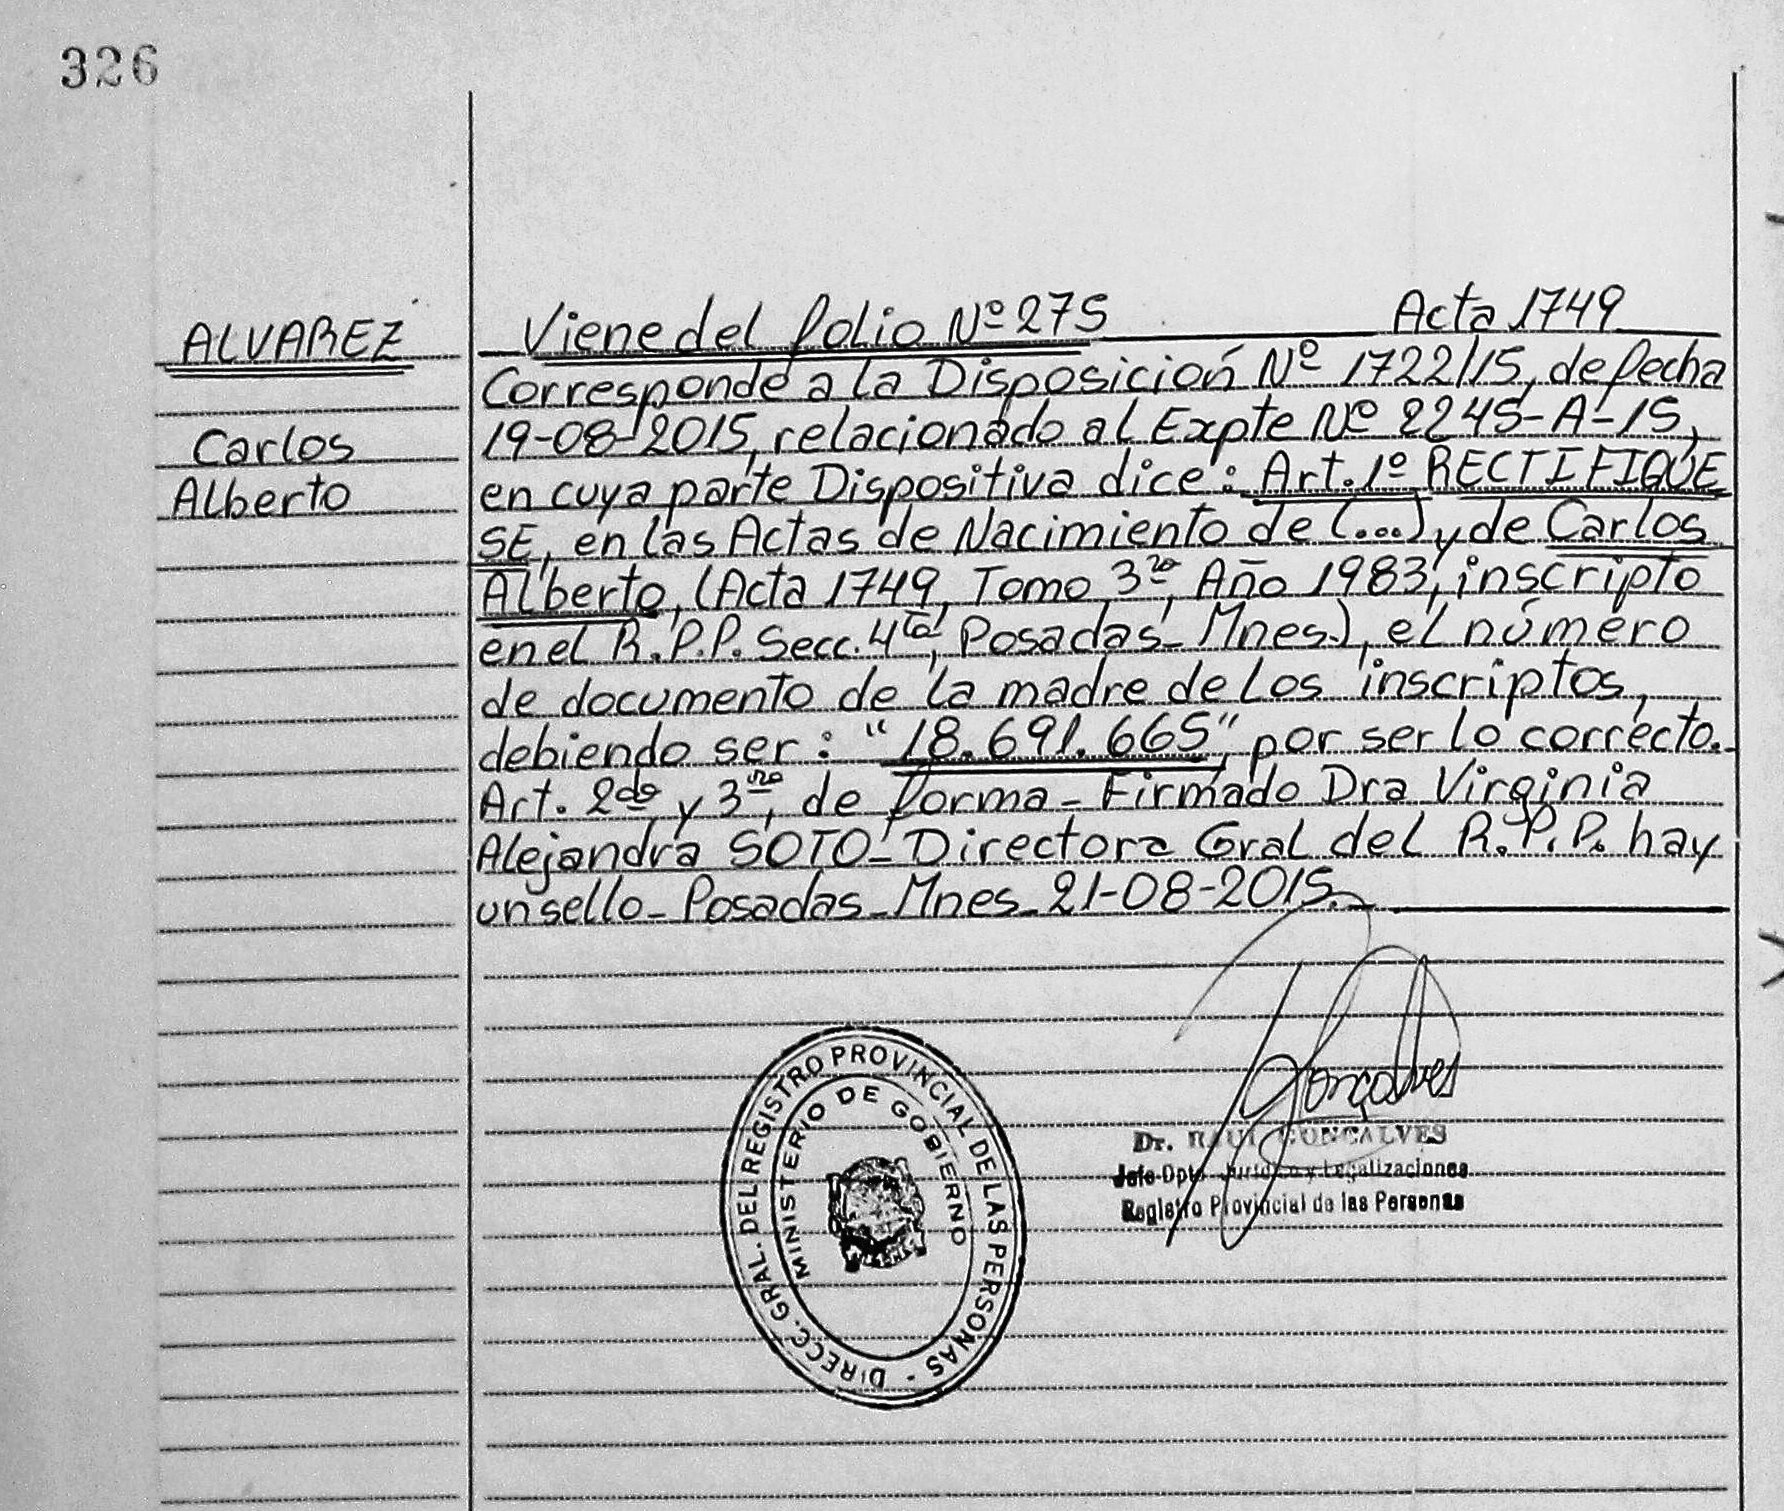 326
ALVAREZ
Carlos
Alberto
Viene del folio Nº 275 Acta 1749
Corresponde a la Disposición Nº 1722/15, de fecha
19-08-2015, relacionado al Expte Nº 2245-A-15,
en cuya parte Dispositiva dice: Art. 1º RECTIFIQUE
SE, en las Actas de Nacimiento de (...) y de Carlos
Alberto, (Acta 1749, Tomo 3ro, Año 1983, inscripto
en el R.P.P. Secc. 4ta, Posadas-Mnes.), el número
de documento de la madre de los inscriptos,
debiendo ser: "18.691.665", por ser lo correcto.
Art. 2do y 3ro, de forma - Firmado Dra Virginia
Alejandra SOTO - Directora Gral del R.P.P. hay
un sello - Posadas - Mnes - 21-08-2015.
DIRECC. GRAL. DEL REGISTRO PROVINCIAL DE LAS PERSONAS -
MINISTERIO DE GOBIERNO
Gonçalves
Dr. RAUL GONÇALVES
Jefe Dpto Jurídico y Legalizaciones
Registro Provincial de las Personas